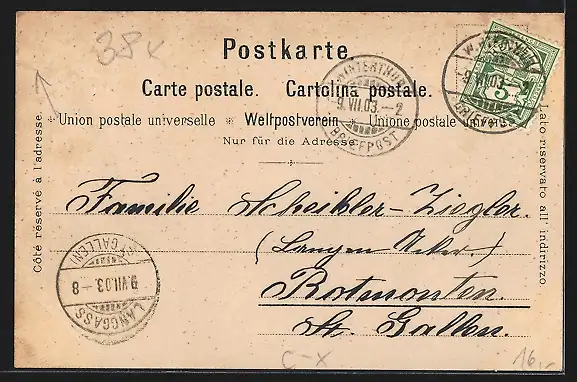 38 x
Postkarte.
Carte postale. Cartolina postale.
Union postale universelle * Weltpostverein * Unione postale universale
Nur für die Adresse.
Côté réservé à l'adresse.
Lato riservato all' indirizzo.
WINTERTHUR
9.VII.03.–2
BRIEFPOST
WINTERTHUR
9.VII.03.–2
BRIEFPOST
5
Familie Scheibler-Ziegler.
(Langen Acker.)
Rotmonten.
St. Gallen.
(ST. GALLEN)
9.VII.03.–8
LANGGASS
C-X
16,-